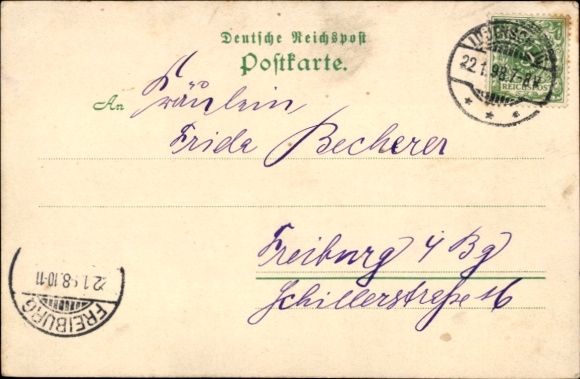 Deutsche Reichspost
Postkarte.
An Fräulein
Frida Becherer
Freiburg i Bg
Schillerstraße 16
22.1.98.7-8
REICHSPOST
FREIBURG
22.1.98.10-11